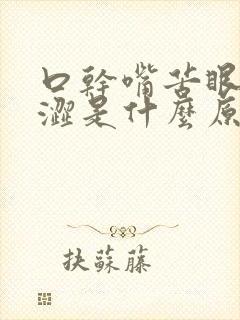 口幹嘴苦眼
澀是什麼原
抉蘇藤